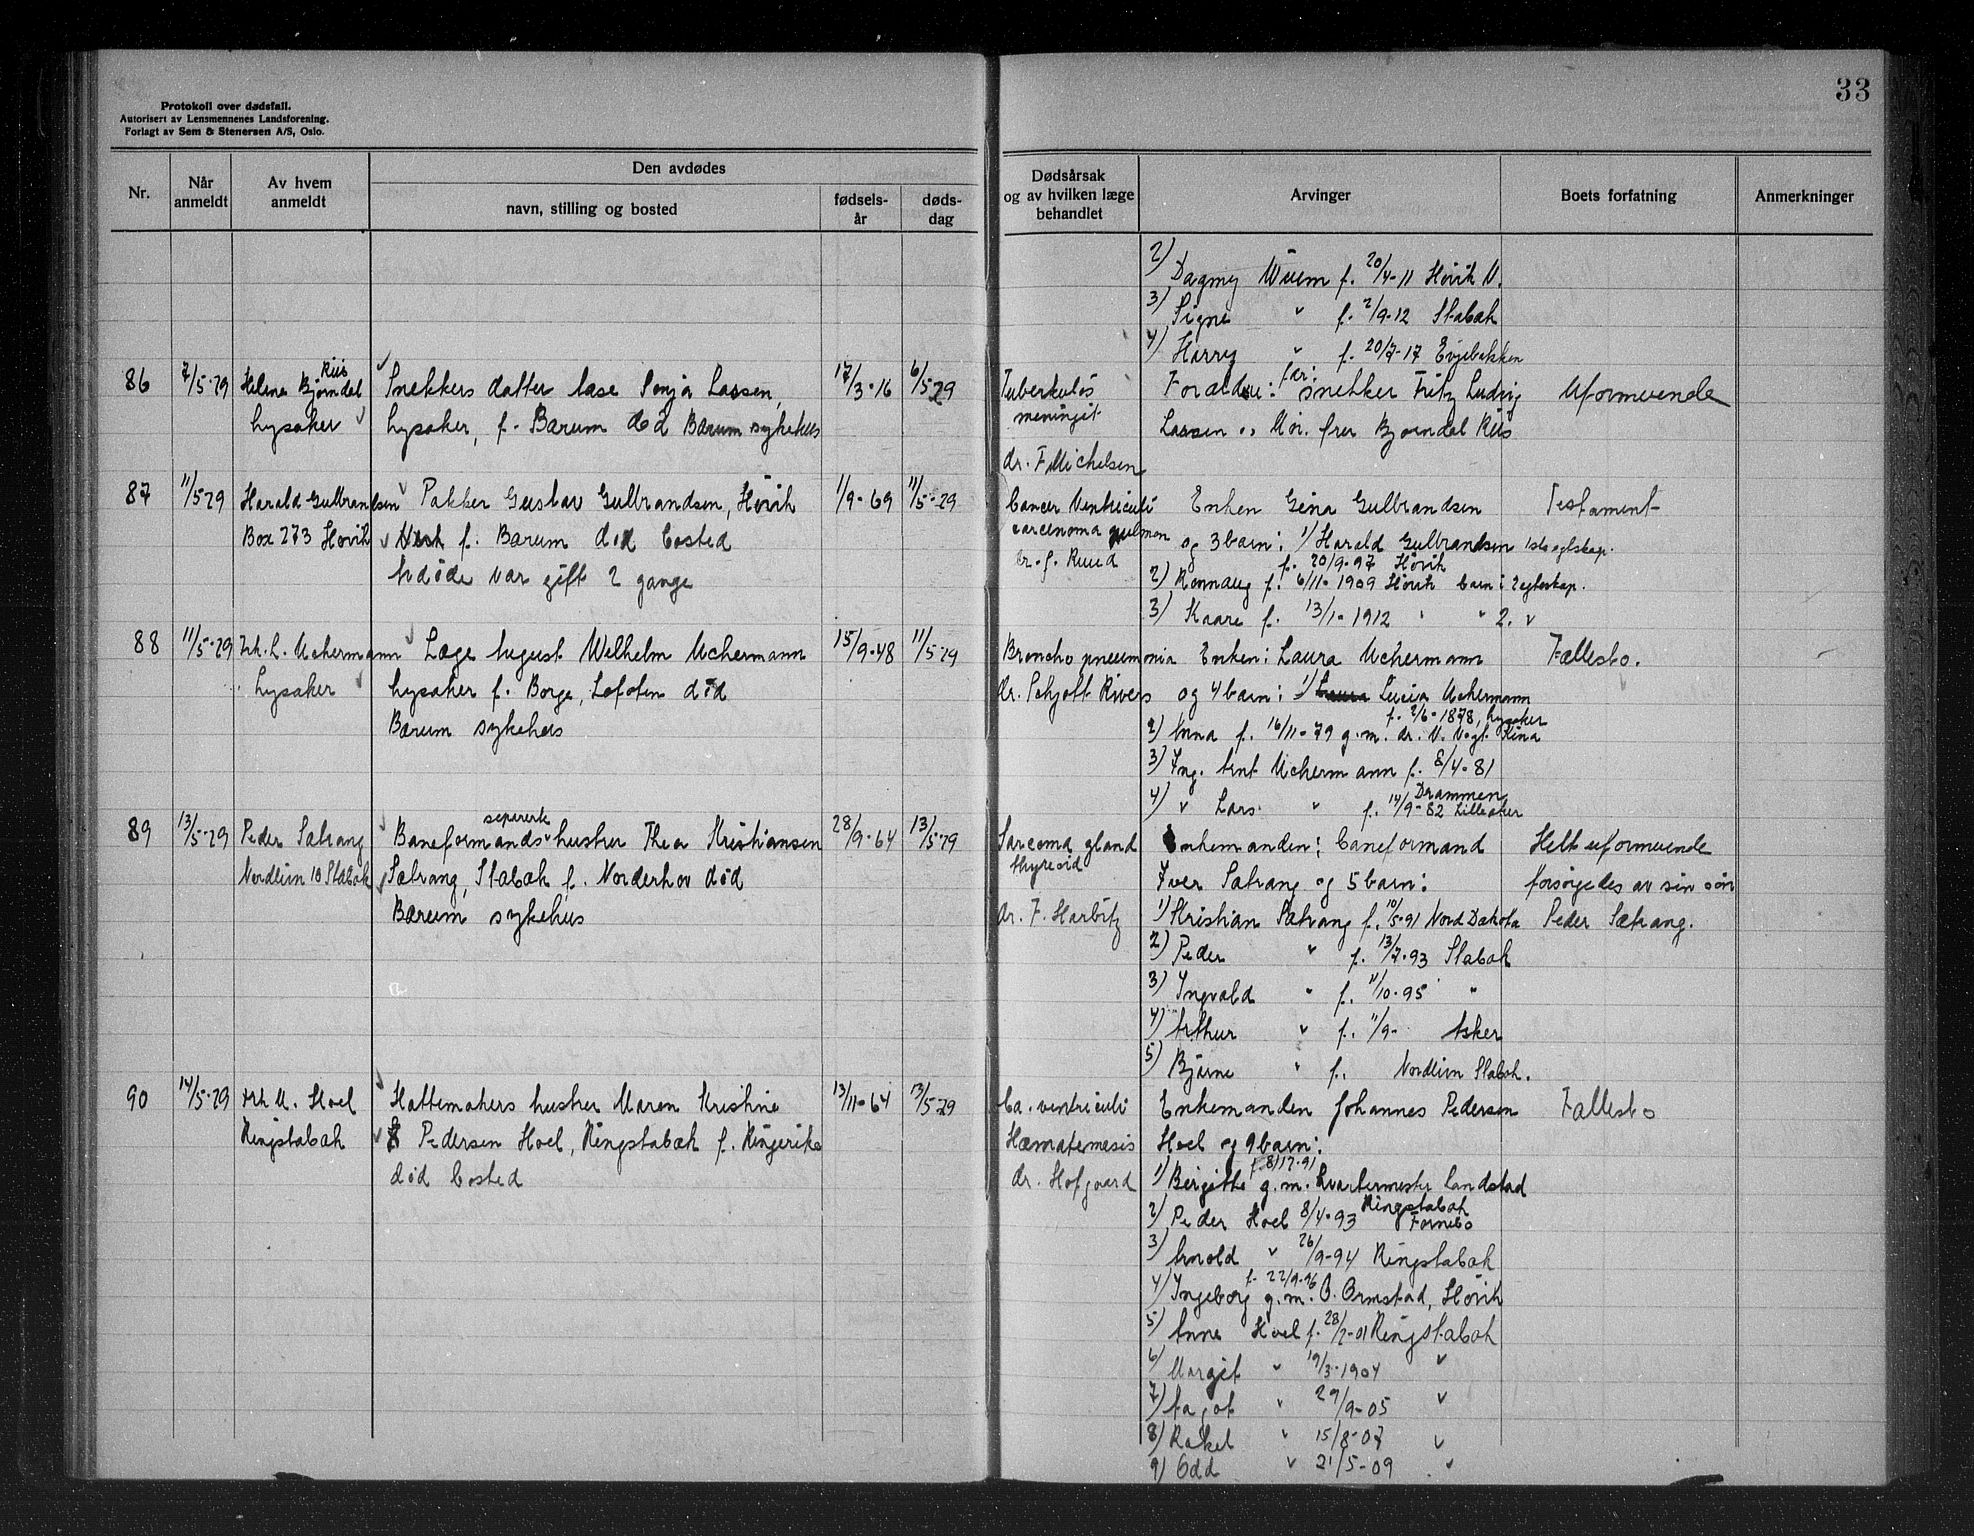 33
Protokoll over dødsfall.
Autorisert av Lensmennenes Landsforening.
Forlagt av Sem & Stenersen A/S, Oslo.
Nr.
Når anmeldt
Av hvem anmeldt
Den avdødes
navn, stilling og bosted
fødsels-år
døds-dag
Dødsårsak og av hvilken læge behandlet
Arvinger
Boets forfatning
Anmerkninger
2) Dagny f. 20/4-11 Høvik V.
3) Signe " f. 2/9-12 Stabæk
4) Harry " f. 20/7-17 Evjebakken
86 7/5-29 Helene Bjørndal Riis
Lysaker
Snekkers datter Aase Sonja Lassen,
Lysaker, f. Bærum død Bærum sykehus
17/3-16 6/5-29
Tuberkuløs
meningit
dr. F. Michelsen
Forældre: far: snekker Fritz Ludvig
Lassen og Mor. frue Bjørndal Riis
Uformuende
87 11/5-29 Harald Gulbrandsen
Box 273 Høvik
Pakker Gustav Gulbrandsen, Høvik
Verk f. Bærum død bosted
Avdøde var gift 2 gange
1/9-69 11/5-29
Cancer Ventriculi
carcinoma pulmon
dr. J. Ruud
Enken Gina Gulbrandsen
og 3 barn: 1) Harald Gulbrandsen 1ste egtskap.
f. 20/9-97 Høvik
2) Rønnaug f. 6/11-1909 Høvik barn i 2 egteskap.
3) Kaare f. 13/1-1912 " " 2. "
Testament
88 11/5-29 Ark. L. Uchermann
Lysaker
Læge August Wilhelm Uchermann
Lysaker f. Borge, Lofoten død
Bærum sykehus
15/9-48 11/5-29
Broncho pneumonia
dr. Schjøtt Rivers
Enken: Laura Uchermann
og 4 barn: 1) Lucia Uchermann
f. 2/6-1878, Lysaker
2) Anna f. 16/11-79 g.m. dr. V. Vogt Kina
3) Ing. Arnt Uchermann f. 8/4-81
Drammen
4) " Lars " f. 14/9-82 Lilleaker
Fællesbo.
89 13/5-29 Peder Sætrang
Nordlivn 10 Stabæk
separerte
Baneformands hustru Thea Kristiansen
Sætrang, Stabæk f. Norderhov død
Bærum sykehus
28/9-64 13/5-29
Sarcoma gland
thyreoid
dr. F. Harbitz
Enkemanden: baneformand
Iver Sætrang og 5 barn:
1) Kristian Sætrang f. 10/5-91 Nord Dakota
2) Peder " f. 13/7-93 Stabæk
3) Ingvald " f. 11/10-95 "
4) Arthur " f. 11/9- Asker
5) Bjarne " f. Nordlivn Stabæk.
Helt uformuende
forsørgedes av sin søn
Peder Sætrang.
90 14/5-29 Ark M. Hoel
Ringstabæk
Hattemakers hustru Maren Kristine
Pedersen Hoel, Ringstabæk f. Ringerike
død bosted
13/11-64 13/5-29
Ca. ventriculi
Hæmatemesis
dr. Hofgaard
Enkemanden Johannes Pedersen
Hoel og 9 barn:
f. 8/12-91
1) Birgitte g.m. Kvartermester Landstad
Ringstabæk
2) Peder Hoel 8/4-93 Fornebo
3) Arnold " 26/9-94 Ringstabæk
f. 22/9-96
4) Ingeborg g.m. O. Ormstad, Høvik
5) Anne Hoel f. 28/2-01 Ringstabæk
6) Margit " 19/3-1904 "
7) Aagot " 29/9-05 "
8) Rakel " 15/8-07 "
9) Odd " 21/5-09 "
Fællesbo